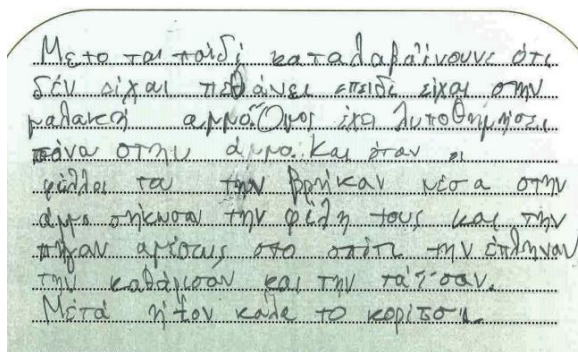 Μετο ται παιδί καταλαβαίνουνε ότι
δέν είχαι πεθάνει επειδε είχαι στην
μαλακή αμμο. Όμος έχει λυποθημήσει
πάνω στην άμμο. και όταν οι
φίλλοι τα την βρήκαν μέσα στην
άμμο σήκωσαν την φίλη τους και την
πήγαν αμέσως στο σπίτι την έπληναν
την καθάρισαν και την τάϊσαν.
Μετά ήτον καλε το κορίτσι.